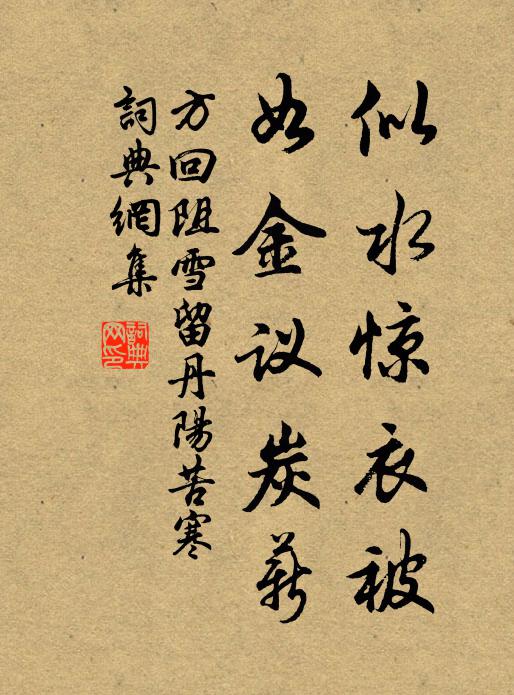 似水惊衣被
如金议炭薪
方回阻雪留丹陽苦寒
詞典網集
詞典網印